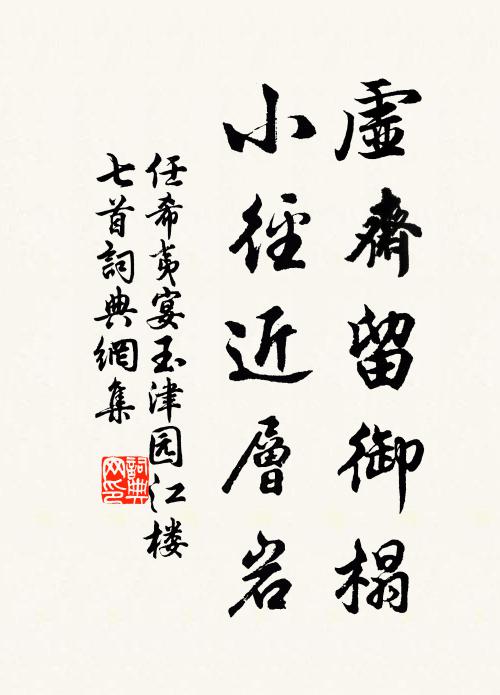 虛齋留御榻
小徑近層岩
任希夷宴玉津园江楼
七首詞典網集
詞典
网印